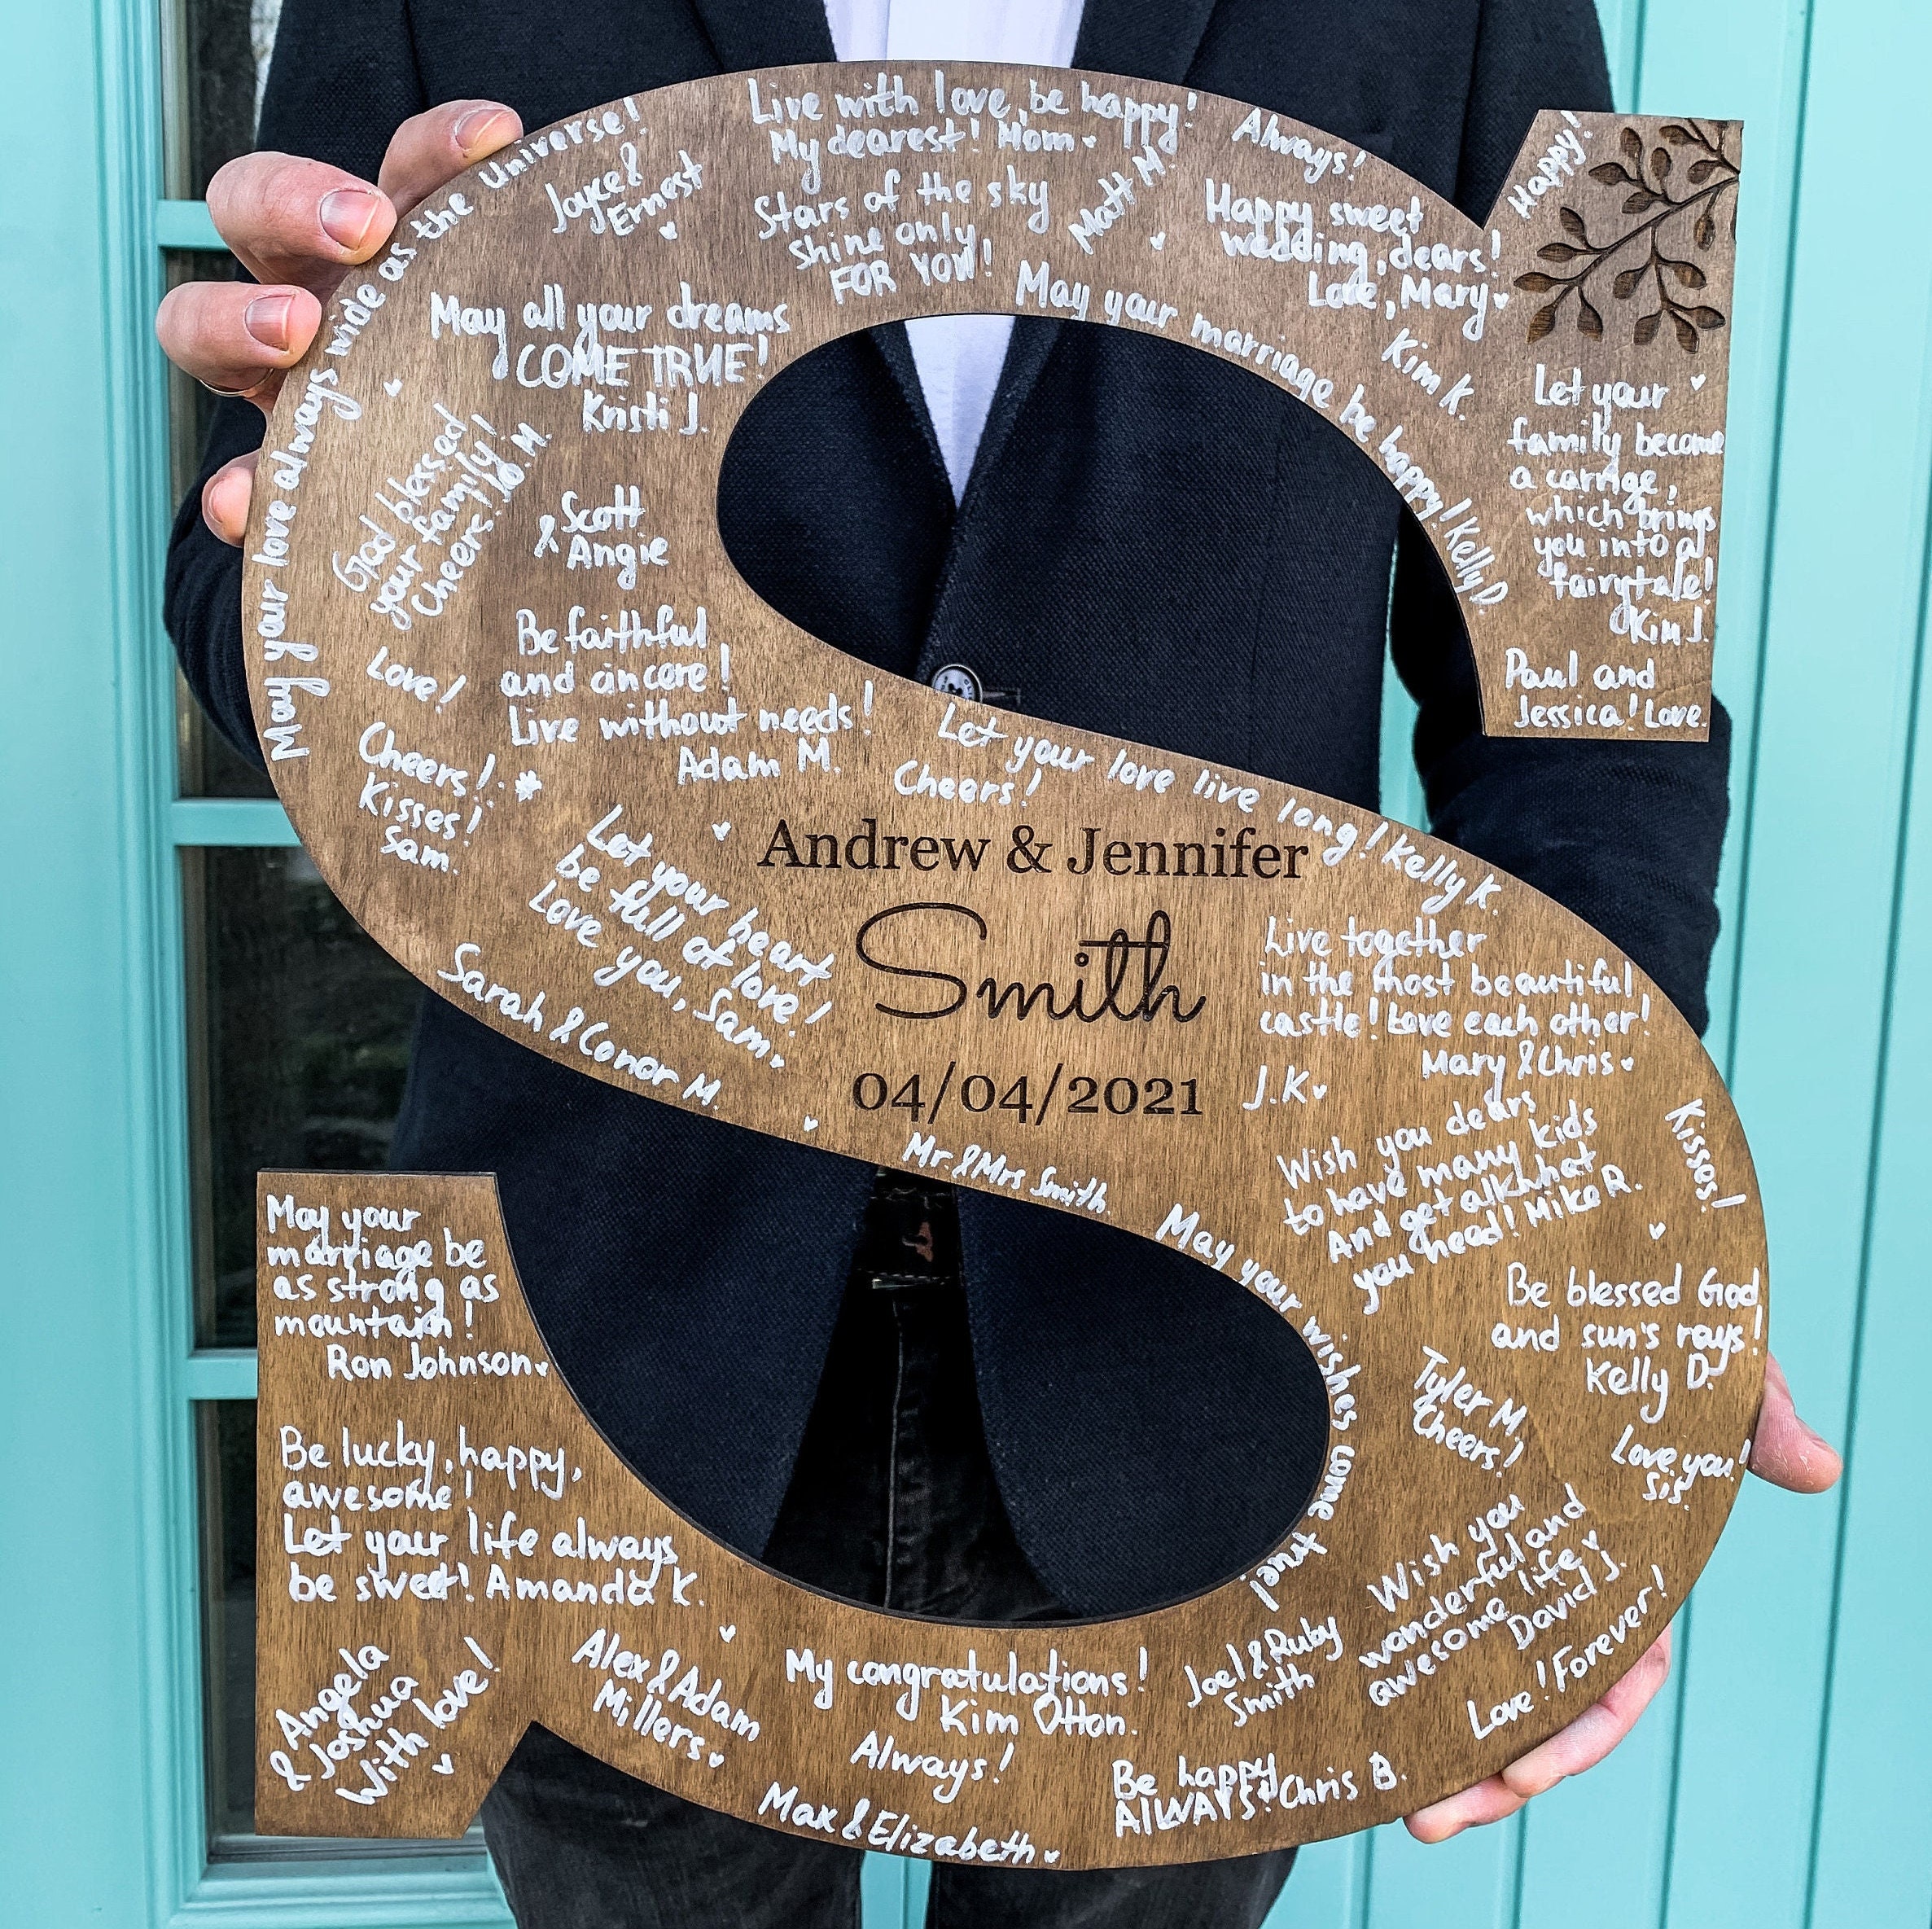 Live with love, be happy!
My dearest! Mom
Always!
Happy!
May your love always wide as the Universe!
Joyce &
Ernest
Stars of the sky
shine only
FOR YOU!
Matt M
Happy sweet
wedding, dears!
Love, Mary
May all your dreams
COME TRUE!
Kristi J.
May your marriage be happy! Kelly D
Kim K.
Let your
family become
a carrige,
which brings
you into a
fairytale!
Kim J.
Paul and
Jessica! Love.
God blessed
your family!
Cheers! O.M.
& Scott
Angie
Love!
Be faithful
and cincere!
Live without needs!
Adam M.
Cheers!
Kisses!
Sam.
Let your love live long! Kelly K.
Cheers!
Andrew & Jennifer
Smith
04/04/2021
Let your heart
be full of love!
Love you, Sam
Sarah & Conor M.
Live together
in the most beautiful
castle! Love each other!
Mary & Chris
J.K
Mr. & Mrs Smith.
Wish you dears
to have many kids
And get all what
you need! Mike R.
Kisses!
May your
marriage be
as strong as
mountain!
Ron Johnson
May your wishes come true!
Be blessed God
and sun's rays!
Kelly D.
Tyler M.
Cheers!
Love you!
Sis.
Be lucky, happy,
awesome!
Let your life always
be sweet! Amanda K.
Wish you
wonderful and
awesome life
David J.
Love! Forever!
Angela
& Joshua
With love!
Alex & Adam
Millers
My congratulations!
Kim Otton.
Always!
Joel & Ruby
Smith
Max & Elizabeth
Be happy
ALWAYS! Chris B.